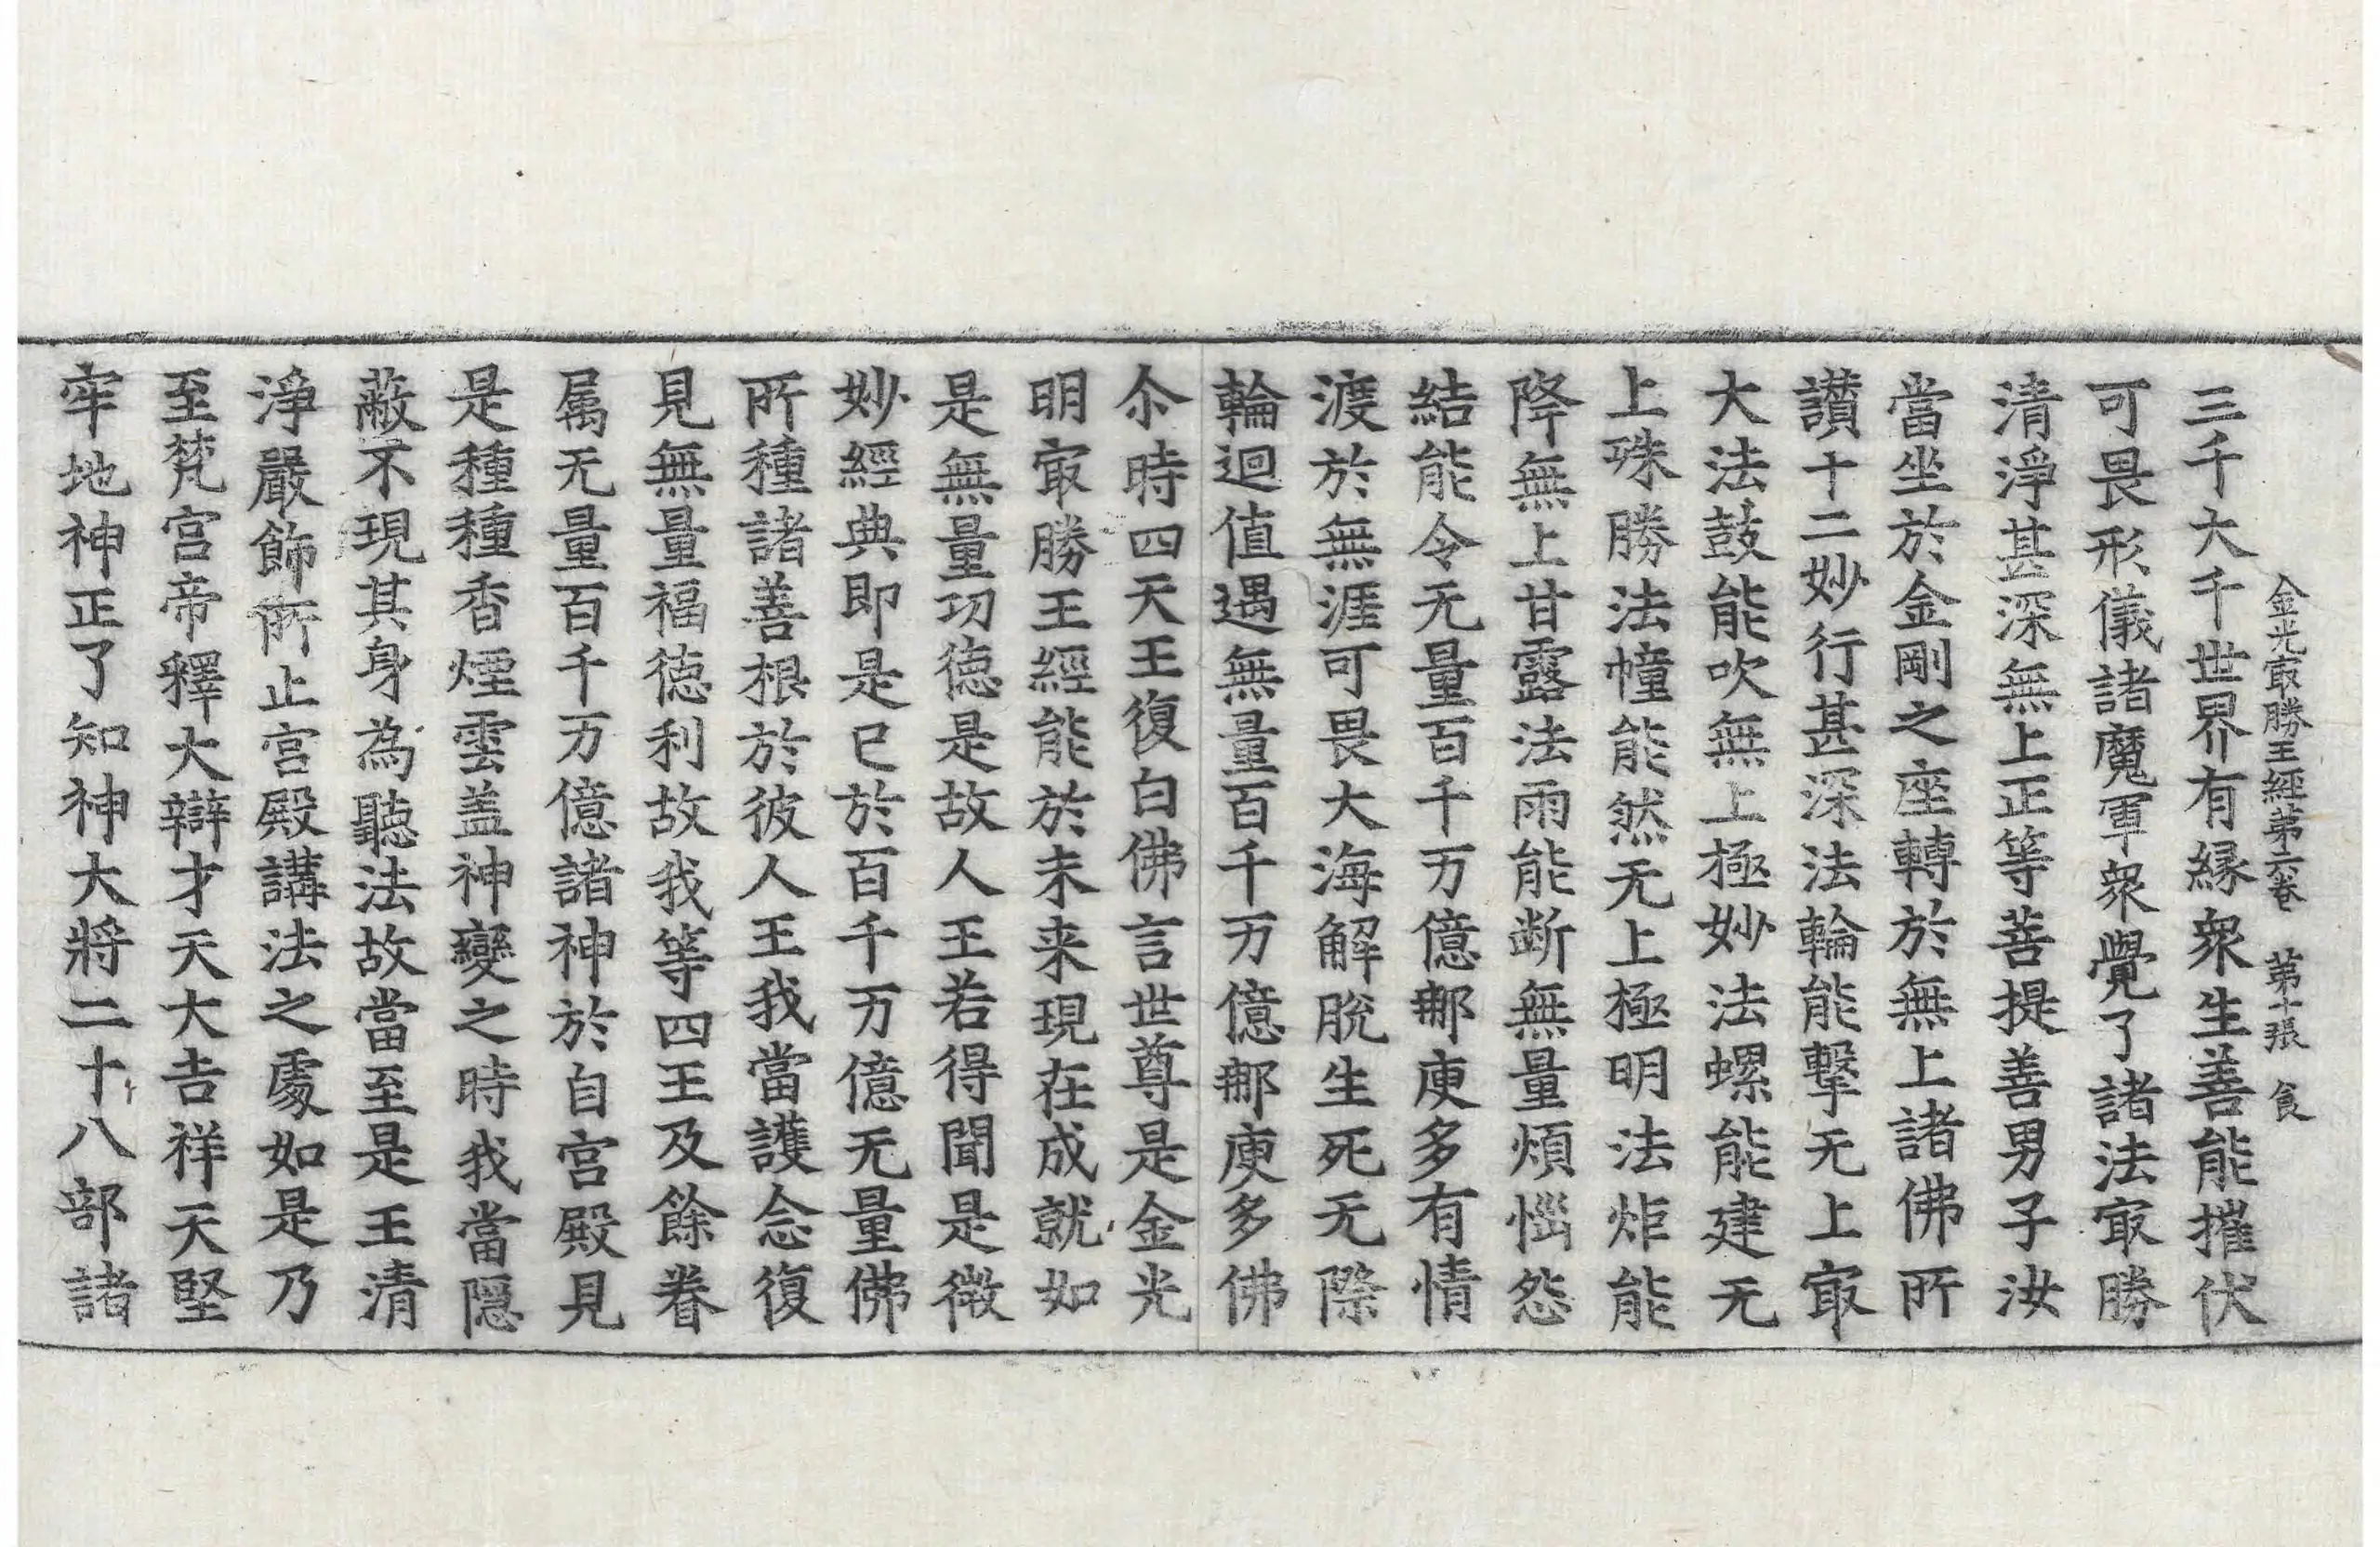 金光㝡勝王經第六卷 第十張 食
三千大千世界有縁衆生善能摧伏
可畏形儀諸魔軍衆覺了諸法㝡勝
清淨甚深無上正等菩提善男子汝
當坐於金剛之座轉於無上諸佛所
讃十二妙行甚深法輪能擊无上㝡
大法鼓能吹無上極妙法螺能建无
上殊勝法幢能然无上極明法炬能
降無上甘露法雨能斷無量煩惱怨
結能令无量百千万億那庾多有情
渡於無涯可畏大海解脫生死无際
輪迴值遇無量百千万億那庾多佛
尒時四天王復白佛言世尊是金光
明㝡勝王經能於未来現在成就如
是無量功徳是故人王若得聞是微
妙經典即是已於百千万億无量佛
所種諸善根於彼人王我當護念復
見無量福徳利故我等四王及餘眷
属无量百千万億諸神於自宫殿見
是種種香煙雲盖神變之時我當隠
蔽不現其身為聽法故當至是王清
淨嚴飾所止宫殿講法之處如是乃
至梵宫帝釋大辯才天大吉祥天堅
牢地神正了知神大將二十八部諸